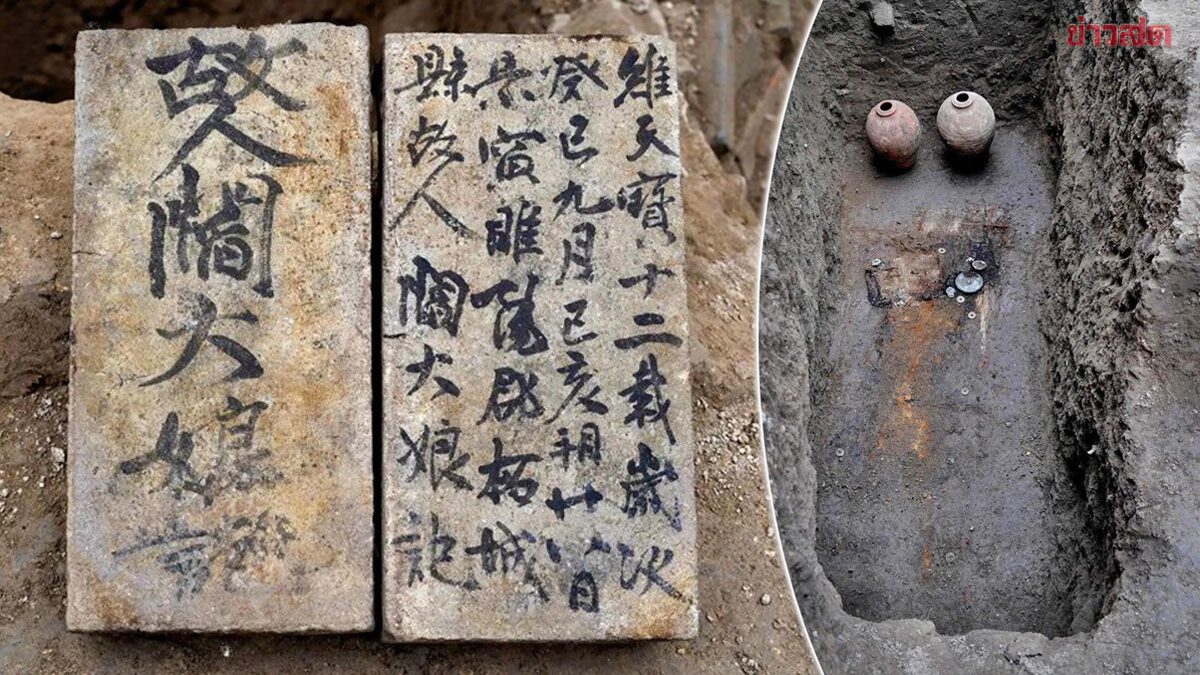 故人閻大娘
維天寶十二載歲次
癸巳九月己亥朔廿八日
景寅睢陽郡柘城
縣故人閻大娘記
ข่าวสด